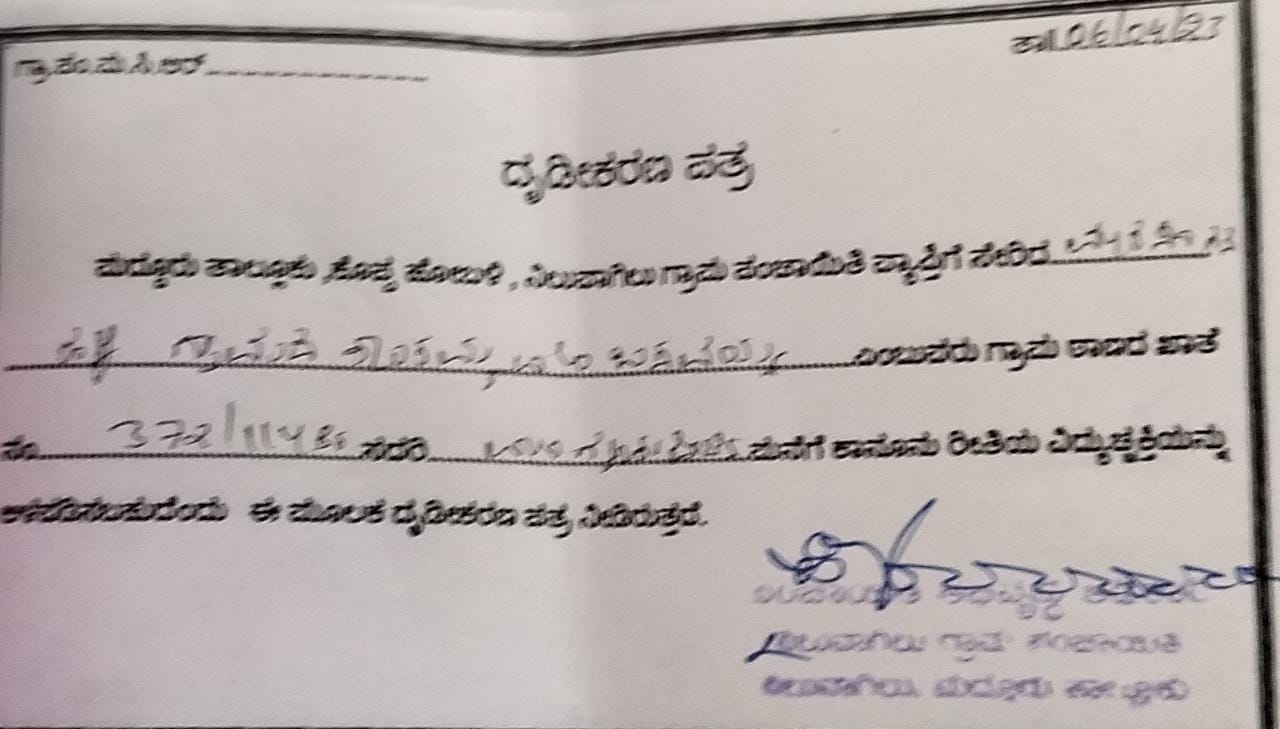 ಗ್ರಾ.ಪಂ.ಮ.ಸಿ.ಆರ್
ತಾ॥ 06/04/23
ದೃಡೀಕರಣ ಪತ್ರ
ಮದ್ದೂರು ತಾಲ್ಲೂಕು ,ಕೊಪ್ಪ ಹೋಬಳಿ , ನಿಲುವಾಗಿಲು ಗ್ರಾಮ ಪಂಚಾಯಿತಿ ವ್ಯಾಪ್ತಿಗೆ ಸೇರಿದ
ಹಳ್ಳಿ ಗ್ರಾಮದ ಎಂಬುವರು ಗ್ರಾಮ ಠಾಣದ ಖಾತೆ
ನಂ ಸದರಿ ಮನೆಗೆ ಕಾನೂನು ರೀತಿಯ ವಿದ್ಯುಚ್ಛಕ್ತಿಯನ್ನು
ಅಳವಡಿಸಬಹುದೆಂದು ಈ ಮೂಲಕ ದೃಡೀಕರಣ ಪತ್ರ ನೀಡಿರುತ್ತದೆ.
ಪಂಚಾಯಿತಿ ಅಭಿವೃದ್ಧಿ
ನಿಲುವಾಗಿಲು ಗ್ರಾಮ ಪಂಚಾಯಿತಿ
ನಿಲುವಾಗಿಲು, ಮದ್ದೂರು ತಾಲ್ಲೂಕು